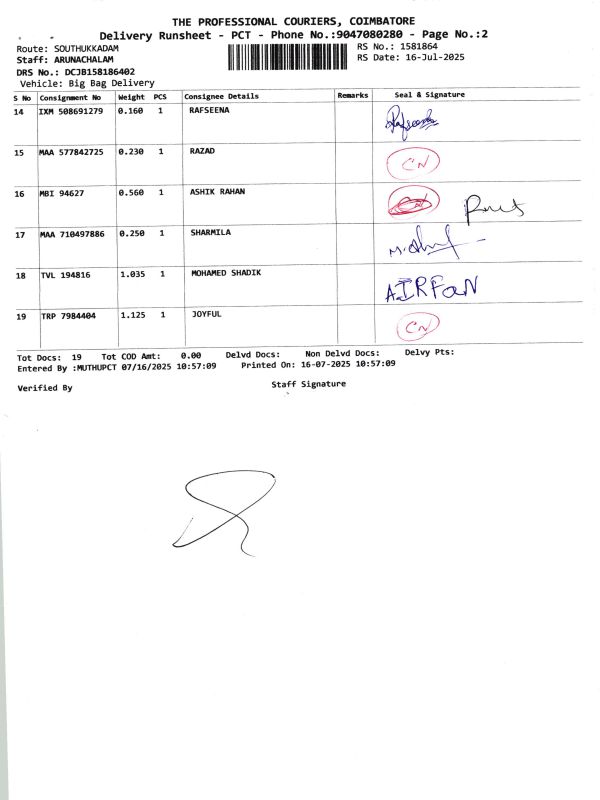 THE PROFESSIONAL COURIERS, COIMBATORE
Delivery Runsheet - PCT - Phone No.:9047080280 - Page No.:2
Route: SOUTHUKKADAM RS No.: 1581864
Staff: ARUNACHALAM RS Date: 16-Jul-2025
DRS No.: DCJB158186402
Vehicle: Big Bag Delivery
S No Consignment No Weight PCS Consignee Details Remarks Seal & Signature
14 IXM 508691279 0.160 1 RAFSEENA Rafseena
15 MAA 577842725 0.230 1 RAZAD CN
16 MBI 94627 0.560 1 ASHIK RAHAN
17 MAA 710497886 0.250 1 SHARMILA
18 TVL 194816 1.035 1 MOHAMED SHADIK AIRFAN
19 TRP 7984404 1.125 1 JOYFUL CN
Tot Docs: 19 Tot COD Amt: 0.00 Delvd Docs: Non Delvd Docs: Delvy Pts:
Entered By :MUTHUPCT 07/16/2025 10:57:09 Printed On: 16-07-2025 10:57:09
Verified By Staff Signature